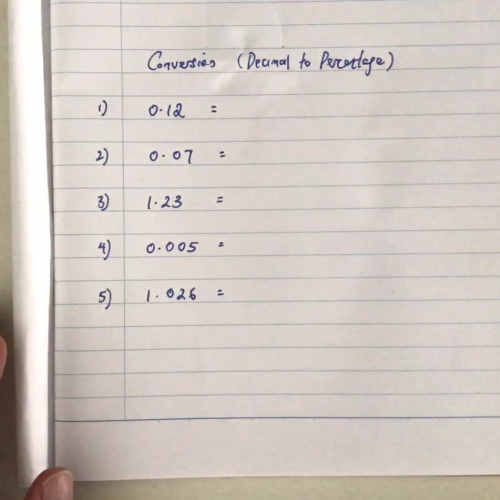 Conversion (Decimal to Percentage)
1) 0.12 =
2) 0.07 =
3) 1.23 =
4) 0.005 =
5) 1.026 =